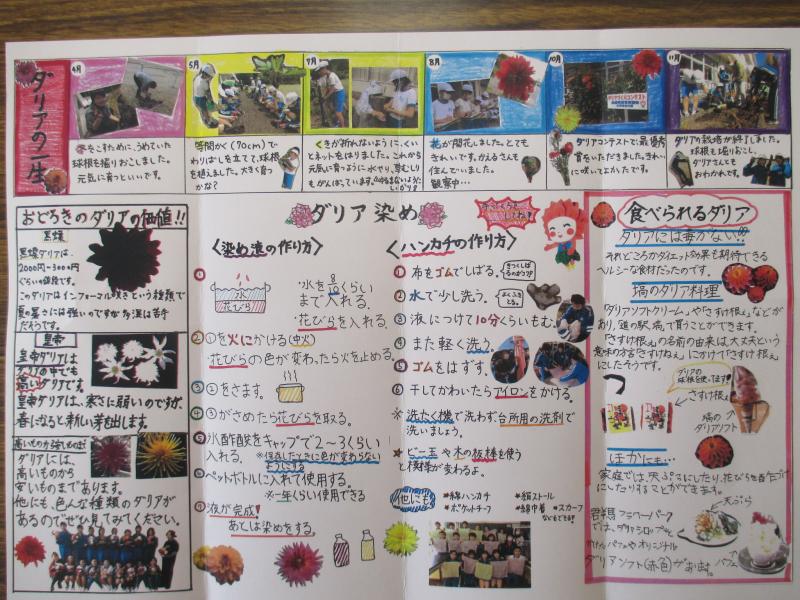 ダリアの一生
4月
冬をこすために、うめていた
球根を掘りおこしました。
元気に育っといいです。
5月
等間かく(70cm)で
わりばしを立て、球根
を植えました。大きく育つ
かな?
7月
くきが折れないように、くい
とネットをはりました。これから
元気に育つように水やり、草むしり
もがんばっています。
8月
花が開花しました。とても
きれいです。かえるさんも
住んでいました。
観察中…
10月
ダリアコンテストで最優秀
賞をいただきました。きれい
に咲いてよかったです。
11月
ダリアの栽培が終了しました。
球根も掘りおこし、
ダリアさんとも
おわかれです。
おどろきのダリアの価値!!
黒蝶
黒蝶ダリアは、
2000円~3000円
ぐらいの値段です。
このダリアはインフォーマル咲きという種類で
夏の暑さには強いのですが多湿は苦手
だそうです。
皇帝
皇帝ダリアは
ダリアの中でも
高いダリアです。
皇帝ダリアは、寒さに弱いのですが、
春になると新しい芽を出します。
ダリアには、
高いものから
安いものまであります。
他にも、色んな種類のダリアが
あるのでぜひ見てみてください。
ダリア染め
〈染め液の作り方〉
① 水を8/10くらい
まで入れる。
花びらを入れる。
水
花びら
② ①を火にかける(中火)
花びらの色が変わったら火を止める。
③ ②をさます。
④ ③がさめたら花びらを取る。
⑤ 氷酢酸をキャップで2~3くらい
入れる。※保存したときに色が変わらない
ようにする
⑥ ペットボトルに入れて使用する。
※一年くらい使用できる
⑦ 液が完成!
あとは染めをする。
〈ハンカチの作り方〉
① 布をゴムでしばる。
② 水で少し洗う。
③ 液につけて10分くらいもむ。
④ また軽く洗う。
⑤ ゴムをはずす。
⑥ 干してかわいたらアイロンをかける。
※洗たく機で洗わず、台所用の洗剤で
洗いましょう。
★ビー玉や木の板棒を使う
と模様が変わるよ。
他にも
*綿ハンカチ *絹ストール
*ポケットチーフ *綿巾着 *スカーフ
などもできる!
食べられるダリア
ダリアには毒がない!!
それどころかダイエット効果も期待できる
ヘルシーな食材だったのです。
塙のダリア料理
「ダリアソフトクリーム」や「さすけ根ぇ」などが
あり、道の駅塙で買うことができます。
「さすけ根ぇ」の名前の由来は、大丈夫という
意味の方言「さすけねぇ」にかけて「さすけ根ぇ」
にしたそうです。
ダリアの
球根を使ってます!
さすけ根ぇ
塙の
ダリアソフト
ほかにも…
家庭では、天ぷらにしたり、花びらを酢づけ
にしたりすることができます。
天ぷら
では、ダリアシロップを
かけたパフェやオリジナル
ダリアソフト(赤色)があります。
パフェ